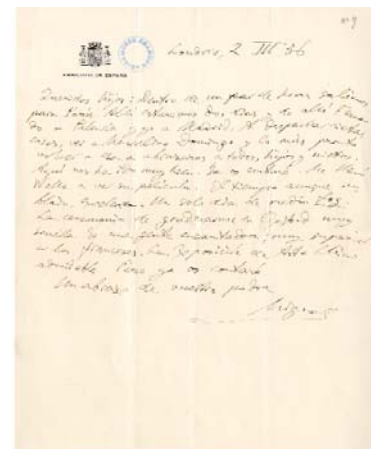 nº 9
EMBAJADA DE ESPAÑA
Londres, 2 III 36
Queridos hijos: Dentro de un par de horas salimos
para París. Allí estaremos dos días y de allí
a Valencia y yo a Madrid. A despachar
cosas, ver a Domingo y lo más pronto
volver a abrazaros a todos, hijos y nietos.
Aquí nos ha ido muy bien. Ya os contaré. Me
a ver su película. El tiempo aunque
blado, excelente. Un solo día de
La ceremonia de graduarme en Oxford muy
sencilla. Es una gente encantadora; muy superior
a los franceses. La Exposición de Arte Chino
admirable. Pero ya os contaré.
Un abrazo de vuestro padre
Miguel